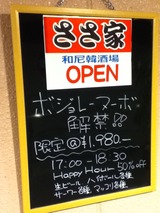 ささ家
和尼韓酒場
OPEN
ボジョレーヌーボ
解禁!!
限定@¥1,980.-
17:00-18:30
Happy Hour 50%off
生ビール ハイボール各種
サーワー各種 マッコリ各種